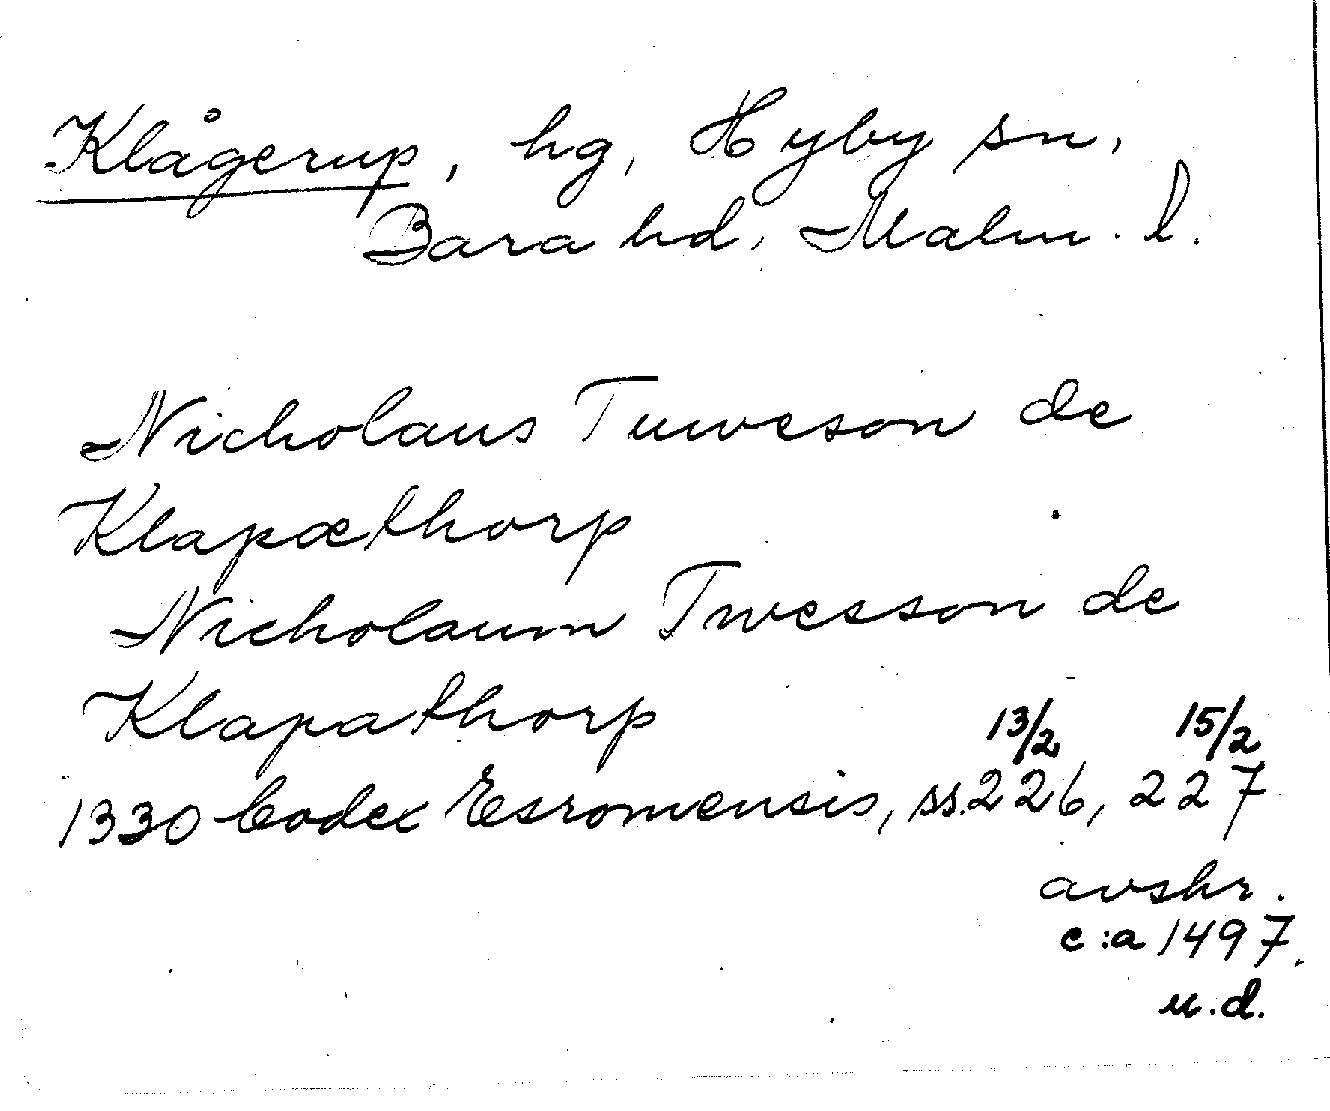 Klågerup, hg, Hyby sn,
Bara hd, Malm. l.
Nicholaus Tuweson de
Klapæthorp
Nicholaum Twesson de
Klapathorp
13/2 15/2
1330 Codex Esromensis, ss. 226, 227
avskr.
c:a 1497.
u.d.